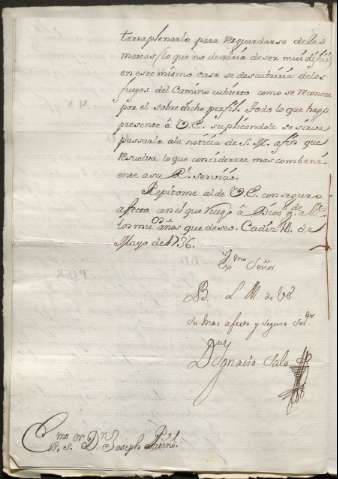 terraplenarlo para resguardarse de las
mareas, lo que no dexaria de ser mui dificil
en este mismo caso se descubriria de los
fuegos del Camino cubierto como se manifiesta
por el sobre dicho perfil. Todo lo que hago
presente â V.E. suplicandole se sirva
passarlo a la noticia de S. M. afin que
resuelva lo que considerare mas combeni-
ente a su Rl. servicio.
Repitome al de V.E. con seguro
afecto con el que ruego â Dios gde. a V.E.
los ms. años que deseo. Cadiz 14 de
Mayo de 1736.
Exmo. Señor
B. L. M. de VE
su mas afecto y seguro servr.
Dn. Ignacio Sala
Exmo. Sr. Dn. Joseph Patiño.